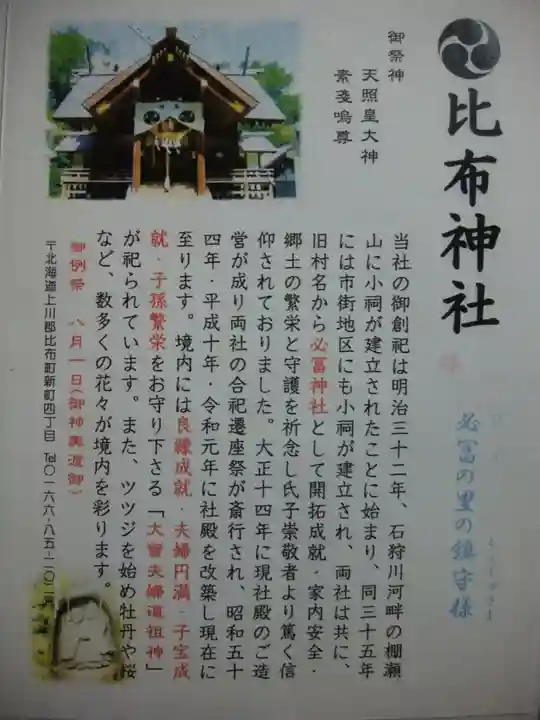 比布神社
必冨の里の鎮守様
御祭神
天照皇大神
素戔嗚尊
当社の御創祀は明治三十二年、石狩川河畔の棚瀬
山に小祠が建立されたことに始まり、同三十五年
には市街地区にも小祠が建立され、両社は共に、
旧村名から必冨神社として開拓成就・家内安全・
郷土の繁栄と守護を祈念し氏子崇敬者より篤く信
仰されておりました。大正十四年に現社殿のご造
営が成り両社の合祀遷座祭が斎行され、昭和五十
四年・平成十年・令和元年に社殿を改築し現在に
至ります。境内には良縁成就・夫婦円満・子宝成
就・子孫繁栄をお守り下さる「大曽夫婦道祖神」
が祀られています。また、ツツジを始め牡丹や桜
など、数多くの花々が境内を彩ります。
御例祭 八月一日(御神輿渡御)
〒北海道上川郡比布町新町四丁目 Tel〇一六六‐八五‐二〇